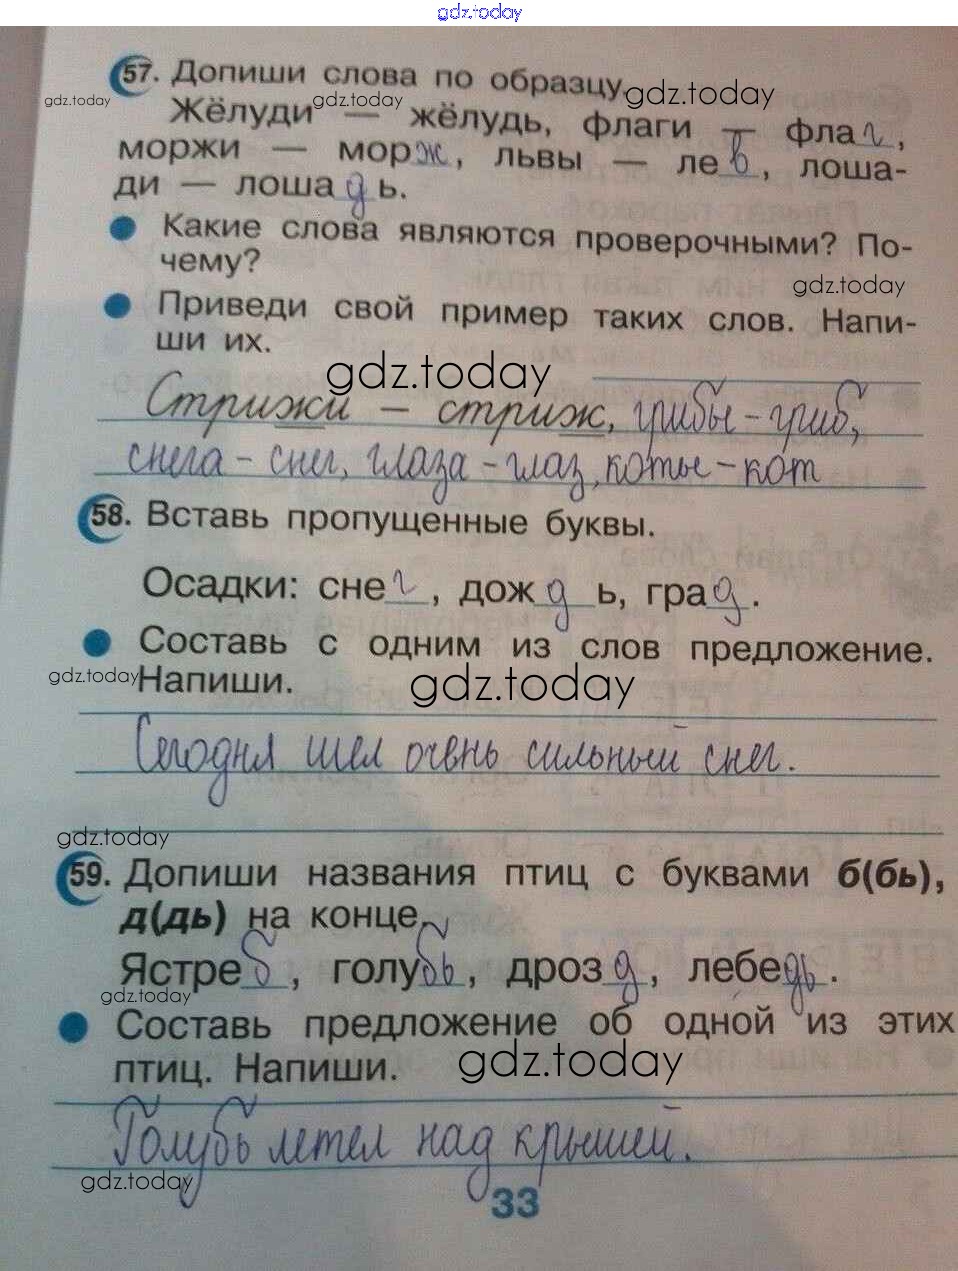 gdz.today
57. Допиши слова по образцу.
gdz.today gdz.today gdz.today
Жёлуди — жёлудь, флаги — флаг,
моржи — морж, львы — лев, лоша-
ди — лошадь.
Какие слова являются проверочными? По-
чему?
gdz.today
Приведи свой пример таких слов. Напи-
ши их.
gdz.today
Стрижи – стриж, грибы – гриб,
снега – снег, глаза – глаз, коты – кот
58. Вставь пропущенные буквы.
Осадки: снег, дождь, град.
Составь с одним из слов предложение.
gdz.today Напиши. gdz.today
Сегодня шел очень сильный снег.
gdz.today
59. Допиши названия птиц с буквами б(бь),
д(дь) на конце.
Ястреб, голубь, дрозд, лебедь.
gdz.today
Составь предложение об одной из этих
птиц. Напиши. gdz.today
Голубь летел над крышей.
gdz.today
33